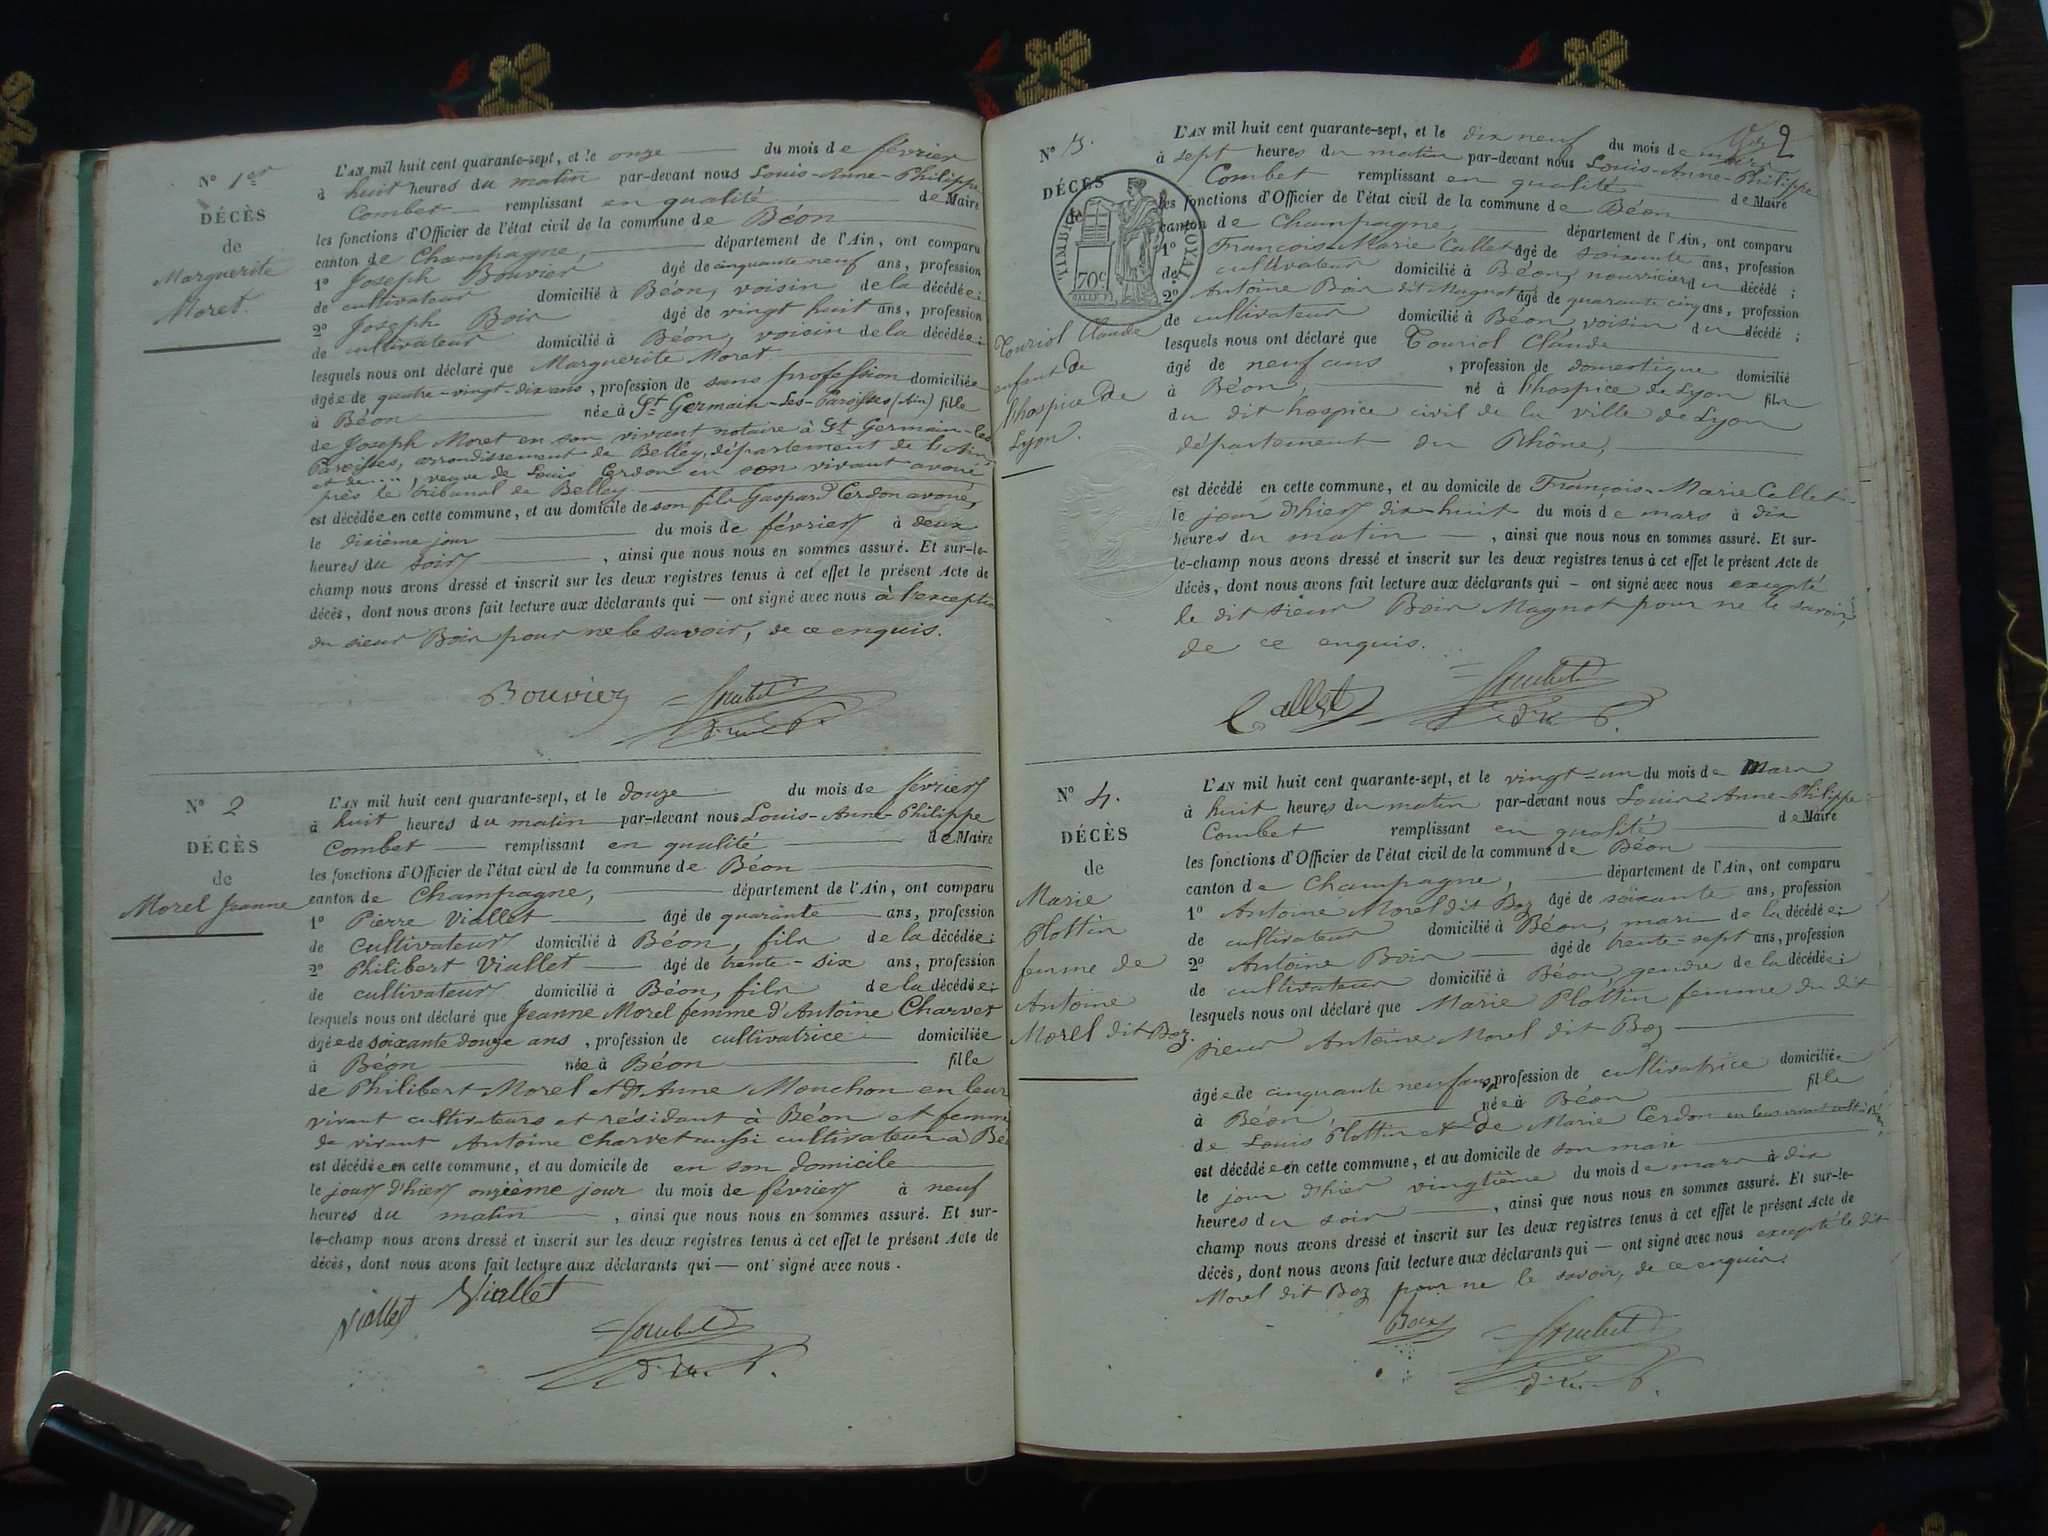 N° 1er
DÉCÈS
de
Marguerite
Moret.
L'AN mil huit cent quarante-sept, et le onze du mois de février
à huit heures du matin par-devant nous Louis-Anne-Philippe
Combet remplissant en qualité de Maire
les fonctions d'Officier de l'état civil de la commune de Béon
canton de Champagne, département de l'Ain, ont comparu
1° Joseph Bouvier âgé de cinquante neuf ans, profession
de cultivateur domicilié à Béon, voisin de la décédée;
2° Joseph Boir âgé de vingt huit ans, profession
de cultivateur domicilié à Béon, voisin de la décédée;
lesquels nous ont déclaré que Marguerite Moret
âgée de quatre-vingt-dix ans, profession de sans profession domiciliée
à Béon née à St Germain-Les-Paroisses (Ain) fille
de Joseph Moret en son vivant notaire à St Germain-les
Paroisses, arrondissement de Belley, département de l'Ain
et de ...., veuve de Louis Cerdon en son vivant avoué
près le tribunal de Belley
est décédée en cette commune, et au domicile de son fils Gaspard Cerdon avoué,
le dixième jour du mois de février à deux
heures du soir, ainsi que nous nous en sommes assuré. Et sur-le-
champ nous avons dressé et inscrit sur les deux registres tenus à cet effet le présent Acte de
décès, dont nous avons fait lecture aux déclarants qui — ont signé avec nous à l'exception
du sieur Boir pour ne le savoir, de ce enquis.
Bouvier Combet
N° 2
DÉCÈS
de
Morel Jeanne
L'AN mil huit cent quarante-sept, et le douze du mois de février
à huit heures du matin par-devant nous Louis-Anne-Philippe
Combet remplissant en qualité de Maire
les fonctions d'Officier de l'état civil de la commune de Béon
canton de Champagne, département de l'Ain, ont comparu
1° Pierre Viallet âgé de quarante ans, profession
de cultivateur domicilié à Béon, fils de la décédée;
2° Philibert Viallet âgé de trente-six ans, profession
de cultivateur domicilié à Béon, fils de la décédée;
lesquels nous ont déclaré que Jeanne Morel femme d'Antoine Charvet
âgée de soixante douze ans, profession de cultivatrice domiciliée
à Béon née à Béon fille
de Philibert Morel et d'Anne Monchon en leur
vivant cultivateurs et résidant à Béon et femme
de vivant Antoine Charvet aussi cultivateur à Bé
est décédée en cette commune, et au domicile de en son domicile
le jour d'hier onzième jour du mois de février à neuf
heures du matin, ainsi que nous nous en sommes assuré. Et sur-
le-champ nous avons dressé et inscrit sur les deux registres tenus à cet effet le présent Acte de
décès, dont nous avons fait lecture aux déclarants qui — ont signé avec nous.
Viallet Viallet
Combet
2
N° 3.
DÉCÈS
de
TIMBRE ROYAL
70c
Touriol Claude
enfant de
l'hospice de
Lyon.
L'AN mil huit cent quarante-sept, et le dix neuf du mois de mars
à sept heures du matin par-devant nous Louis-Anne-Philippe
Combet remplissant en qualité de Maire
les fonctions d'Officier de l'état civil de la commune de Béon
canton de Champagne, département de l'Ain, ont comparu
1° François-Marie Callet âgé de soixante ans, profession
de cultivateur domicilié à Béon, nourricier du décédé;
2° Antoine Boir dit Magnot âgé de quarante cinq ans, profession
de cultivateur domicilié à Béon, voisin du décédé;
lesquels nous ont déclaré que Touriol Claude
âgé de neuf ans, profession de domestique domicilié
à Béon, né à l'hospice de Lyon fils
du dit hospice civil de la ville de Lyon
département du Rhône,
est décédé en cette commune, et au domicile de François-Marie Callet
le jour d'hier dix-huit du mois de mars à dix
heures du matin, ainsi que nous nous en sommes assuré. Et sur-
le-champ nous avons dressé et inscrit sur les deux registres tenus à cet effet le présent Acte de
décès, dont nous avons fait lecture aux déclarants qui — ont signé avec nous excepté
le dit sieur Boir Magnot pour ne le savoir,
de ce enquis.
Callet Combet
N° 4.
DÉCÈS
de
Marie
Plottin
femme de
Antoine
Morel dit Boz.
L'AN mil huit cent quarante-sept, et le vingt-un du mois de Mars
à huit heures du matin par-devant nous Louis-Anne-Philippe
Combet remplissant en qualité de Maire
les fonctions d'Officier de l'état civil de la commune de Béon
canton de Champagne, département de l'Ain, ont comparu
1° Antoine Morel dit Boz âgé de soixante ans, profession
de cultivateur domicilié à Béon, mari de la décédée;
2° Antoine Boir âgé de trente-sept ans, profession
de cultivateur domicilié à Béon, gendre de la décédée;
lesquels nous ont déclaré que Marie Plottin femme du dit
sieur Antoine Morel dit Boz
âgée de cinquante neuf ans, profession de cultivatrice domiciliée
à Béon, née à Béon fille
de Louis Plottin et de Marie Cerdon en leur vivant cult. à Béon,
est décédée en cette commune, et au domicile de son mari
le jour d'hier vingtième du mois de mars à dix
heures du soir, ainsi que nous nous en sommes assuré. Et sur-le-
champ nous avons dressé et inscrit sur les deux registres tenus à cet effet le présent Acte de
décès, dont nous avons fait lecture aux déclarants qui — ont signé avec nous excepté le dit
Morel dit Boz pour ne le savoir, de ce enquis.
Boir Combet